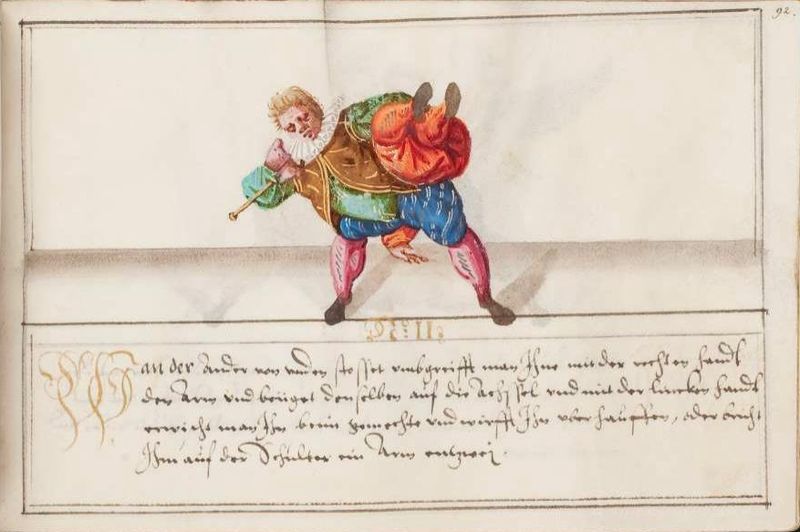 92.
No: 11:
Wan der Ander von vnden stosset vmbgreifft man Ihne mit der rechten handt
den Arm vnd beüget denselben auf die Achssel vnd mit der lincken handt
erwischt man Ihn beim gemechte vnd wirfft Ihn vber hauffen, oder bricht
Ihm auf der Schulter ein Arm entzwei.